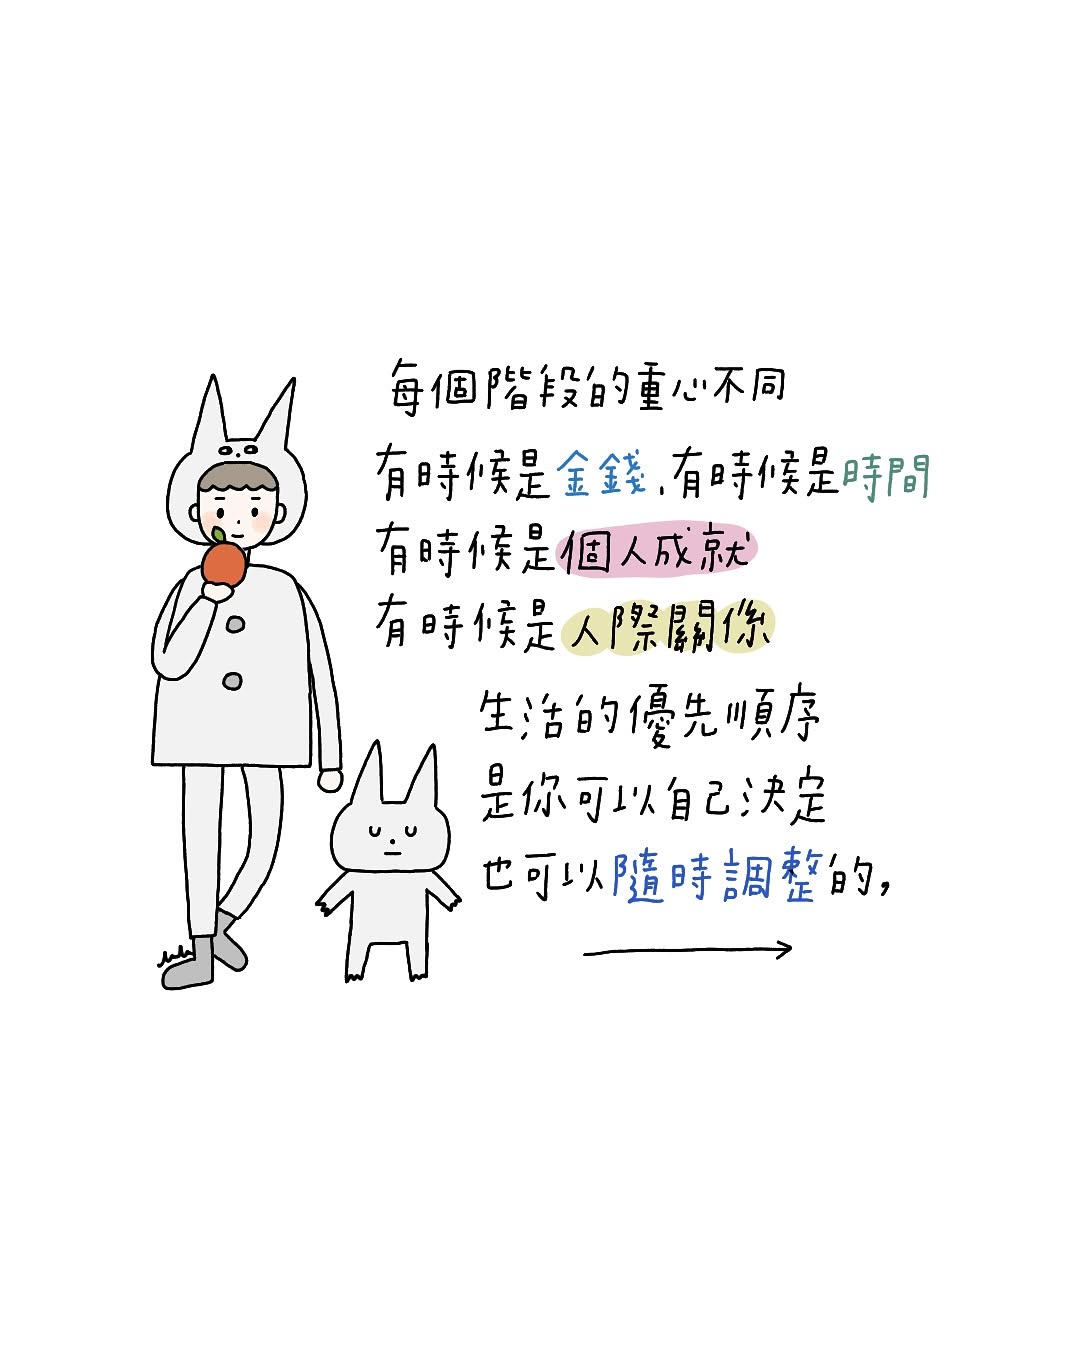 每個階段的重心不同
有時候是金錢、有時候是時間
有時候是個人成就
有時候是人際關係
生活的優先順序
是你可以自己決定
也可以隨時調整的，